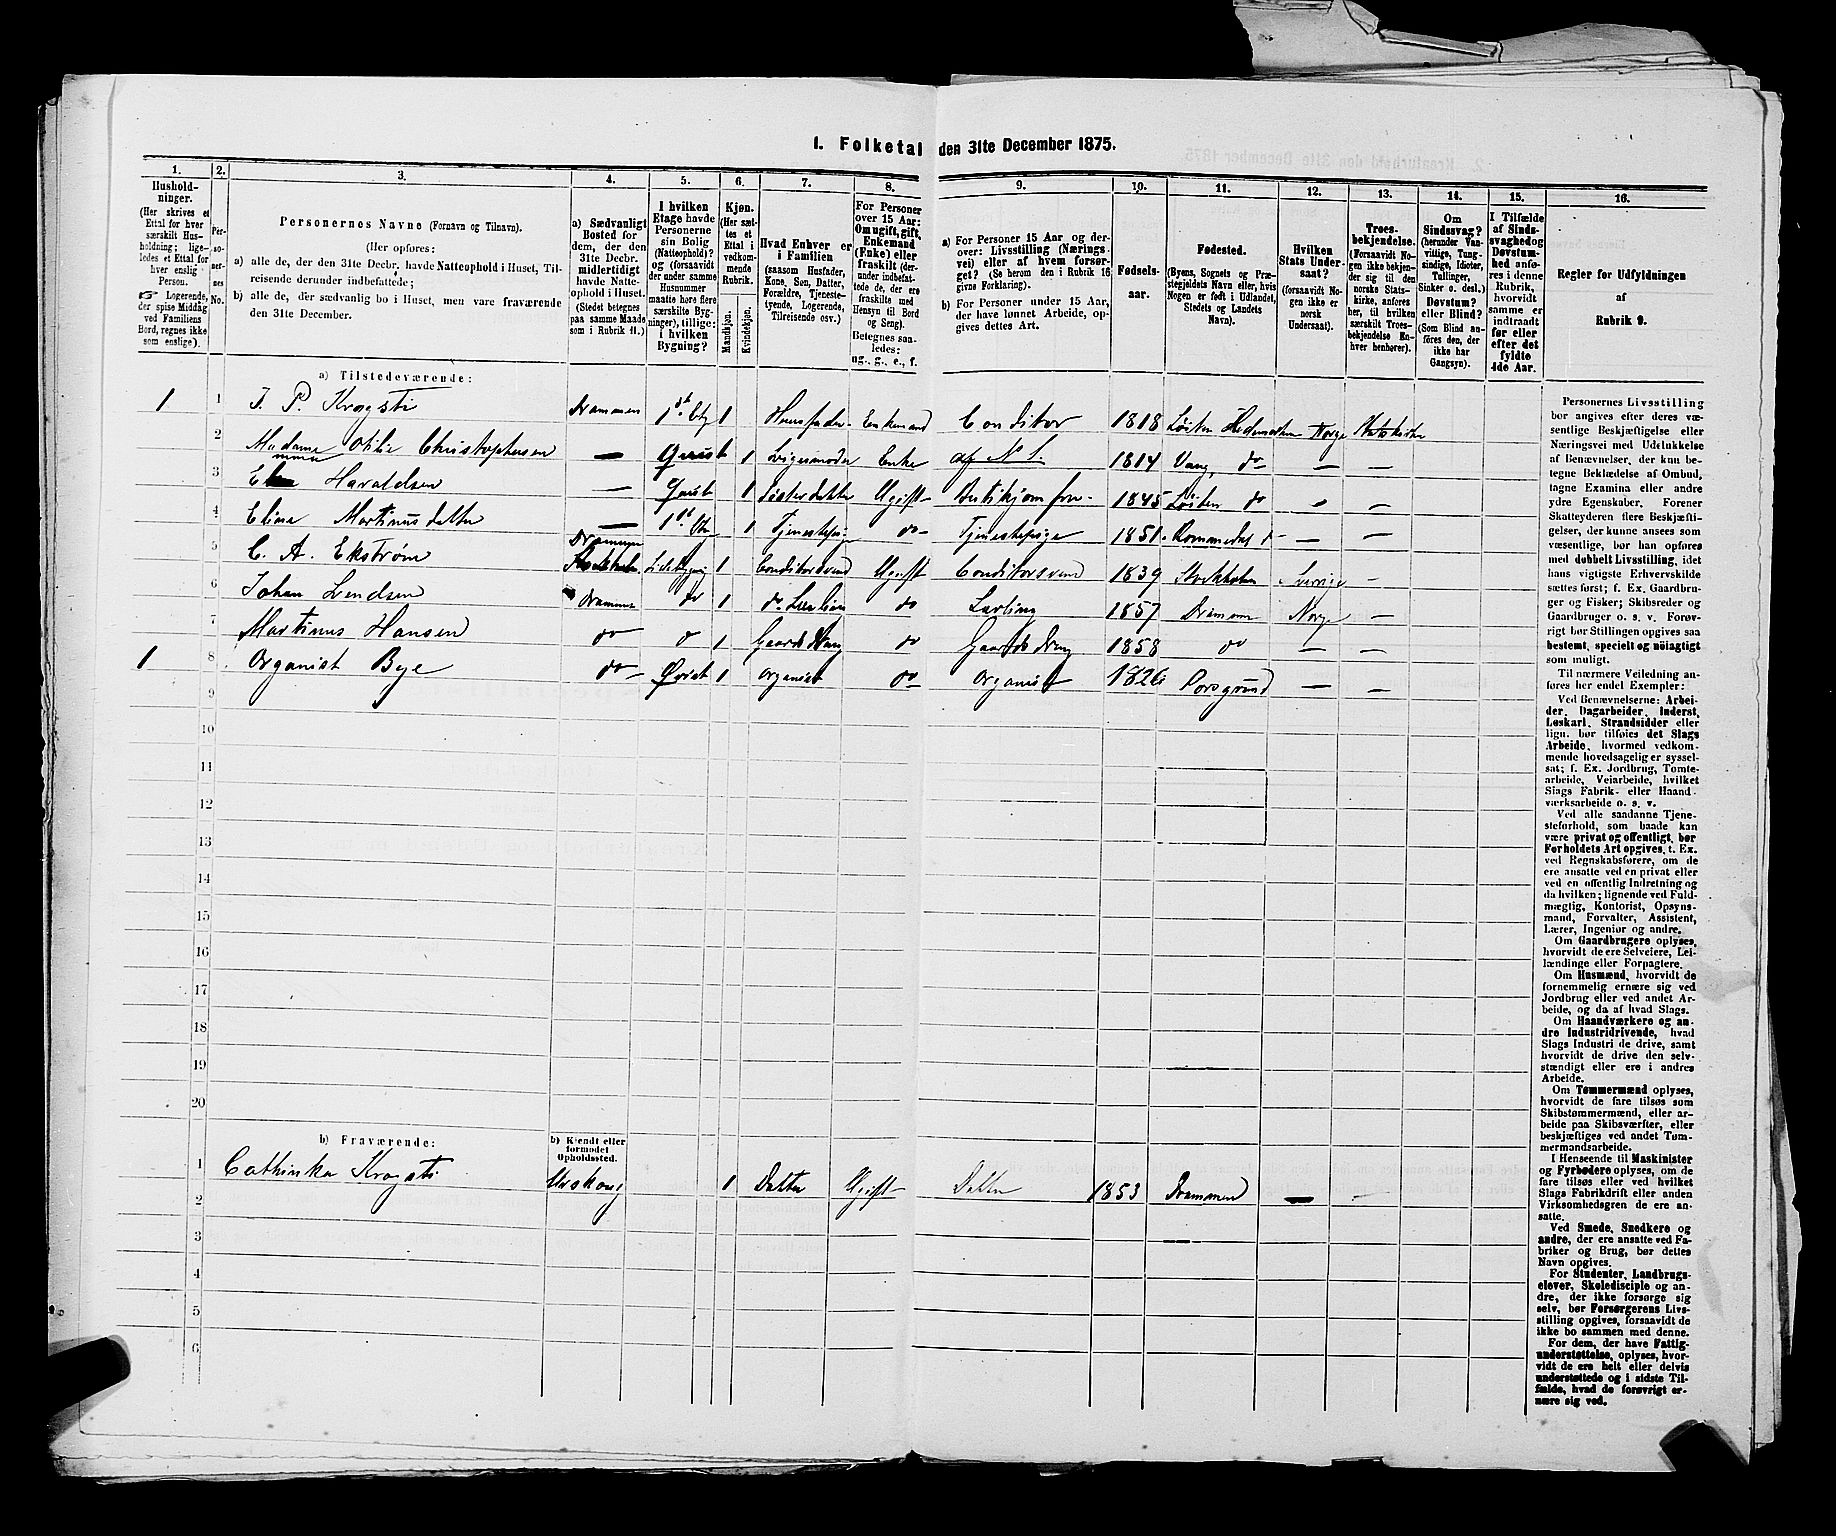 1. Folketal den 31te December 1875.
1. 2. 3. 4. 5. 6. 7. 8. 9. 10. 11. 12. 13. 14. 15. 16.
Hushold-
ninger.
(Her skrives et
Ettal for hver
særskilt Hus-
holdning; lige-
ledes et Ettal for
hver enslig
Person.
☞ Logerende,
der spise Middag
ved Familiens
Bord, regnes ikke
som enslige).
Per-
so-
ner-
nes
No.
Personernes Navne (Fornavn og Tilnavn).
(Her opføres:
a) alle de, der den 31te Decbr. havde Natteophold i Huset, Til-
reisende derunder indbefattede;
b) alle de, der sædvanlig bo i Huset, men vare fraværende
den 31te December.
a) Sædvanligt
Bosted for
dem, der den
31te Decbr.
midlertidigt
havde Natte-
ophold i Huset.
(Stedet betegnes
paa samme Maade
som i Rubrik 11.)
I hvilken
Etage havde
Personerne
sin Bolig
(Natteophold)?
og (forsaavidt
der under samme
Husnummer
maatte høre flere
særskilte Byg-
ninger), tillige:
i hvilken
Bygning?
Kjøn.
(Her sæt-
tes et
Ettal i
vedkom-
mende
Rubrik.
Mandkjøn.
Kvindekjøn.
Hvad Enhver er
i Familien
(saasom Husfader,
Kone, Søn, Datter,
Forældre, Tjeneste-
tyende, Logerende,
Tilreisende osv.)
For Personer
over 15 Aar:
Om ugift, gift,
Enkemand
(Enke) eller
fraskilt (der-
under indbefat-
tede de, der ere
fraskilte med
Hensyn til Bord
og Seng).
Betegnes saa-
ledes:
ug., g., e., f.
a) For Personer 15 Aar og der-
over: Livsstilling (Nærings-
vei) eller af hvem forsør-
get? (Se herom den i Rubrik 16
givne Forklaring).
b) For Personer under 15 Aar,
der have lønnet Arbeide, op-
gives dettes Art.
Fødsels-
aar.
Fødested.
(Byens, Sognets og Præ-
stegjeldets Navn eller, hvis
Nogen er født i Udlandet,
Stedets og Landets
Navn).
Hvilken
Stats Under-
saat?
(forsaavidt No-
gen ikke er
norsk
Undersaat).
Troes-
bekjendelse.
(Forsaavidt No-
gen ikke bekjen-
der sig til den
norske Stats-
kirke, anføres
her, til hvilken
særskilt Troes-
bekjendelse En-
hver henhører).
Om
Sindssvag?
(herunder Van-
vittige, Tung-
sindige, Idioter,
Tullinger,
Sinker o. desl.)
Døvstum?
eller Blind?
(Som Blind an-
føres den, der
ikke har
Gangsyn).
I Tilfælde
af Sinds-
svaghed og
Døvstum-
hed anfø-
res i denne
Rubrik,
hvorvidt
samme er
indtraadt
før eller
efter det
fyldte
4de Aar.
Regler for Udfyldningen
af
Rubrik 9.
a) Tilstedeværende:
1 1 J. P. Krogsti Drammen 1st Etg 1 Huusfader Enkemand Conditor 1818 Løiten Hedemarken Norge Statskirken
2 Madame Otilie Christophersen — Qvist 1 Svigermoder Enke af N 1. 1814 Vang, do — —
3 Haraldsen — Qvist 1 Søsterdatter Ugift Butikjomfru 1845 Løiten do —
4 Elina Martinusdatter — 1st Etg 1 Tjenestepige do Tjenestepige 1851 Rommedal — —
5 C. A. Ekstrøm Drammen Sidebygning 1 Conditorsvend Ugift Conditorsvend 1839 Stockholm Sverrige —
6 Johan Lendsen Drammen do 1 do Lærling do Lærling 1857 Drammen Norge —
7 Martinus Hansen do do 1 Gaardsdreng do Gaardsdreng 1858 do — —
1 8 Organist Bye do Qvist 1 Organist do Organist 1826 Porsgrund — —
9
10
11
12
13
14
15
16
17
18
19
20
b) Fraværende:
b) Kjendt eller
formodet
Opholdssted.
1 Cathinka Krogsti Urskoug 1 Datter Ugift Datter 1853 Drammen — —
2
3
4
5
6
Personernes Livsstilling
bør angives efter deres væ-
sentlige Beskjæftigelse eller
Næringsvei med Udelukkelse
af Benævnelser, der kun be-
tegne Beklædelse af Ombud,
tagne Examina eller andre
ydre Egenskaber. Forener
Skatteyderen flere Beskjæfti-
gelser, der kunne ansees som
væsentlige, bør han opføres
med dobbelt Livsstilling, idet
hans vigtigste Erhvervskilde
sættes først; f. Ex. Gaardbru-
ger og Fisker; Skibsreder og
Gaardbruger o. s. v. Forøv-
rigt bør Stillingen opgives saa
bestemt, specielt og nøiagtigt
som muligt.
Til nærmere Veiledning an-
føres her endel Exempler:
Ved Benævnelserne: Arbei-
der, Dagarbeider, Inderst,
Løskarl, Strandsidder eller
lign. bør tilføies det Slags
Arbeide, hvormed vedkom-
mende hovedsagelig er syssel-
sat; f. Ex. Jordbrug, Tomte-
arbeide, Veiarbeide, hvilket
Slags Fabrik- eller Haand-
værksarbeide o. s. v.
Ved alle saadanne Tjene-
steforhold, som baade kan
være privat og offentligt, bør
Forholdets Art opgives, t. Ex.
ved Regnskabsførere, om de
ere ansatte ved en privat eller
ved en offentlig Indretning og
da hvilken; lignende ved Fuld-
mægtig, Kontorist, Opsyns-
mand, Forvalter, Assistent,
Lærer, Ingeniør og andre.
Om Gaardbrugere oplyses,
hvorvidt de ere Selveiere, Lei-
lændinge eller Forpagtere.
Om Husmænd, hvorvidt de
fornemmelig ernære sig ved
Jordbrug eller ved andet Ar-
beide, og da af hvad Slags.
Om Haandværkere og an-
dre Industridrivende, hvad
Slags Industri de drive, samt
hvorvidt de drive den selv-
stændigt eller ere i andres
Arbeide.
Om Tømmermænd oplyses,
hvorvidt de fare tilsøs som
Skibstømmermænd, eller ar-
beide paa Skibsværfter, eller
beskjæftiges ved andet Tøm-
mermandsarbeide.
I Henseende til Maskinister
og Fyrbødere oplyses, om de
fare tilsøs eller ved hvilket
Slags Fabrikdrift eller anden
Virksomhedsgren de ere an-
satte.
Ved Smede, Snedkere og
andre, der ere ansatte ved Fa-
briker og Brug, bør dettes
Navn opgives.
For Studenter, Landbrugs-
elever, Skoledisciple og an-
dre, der ikke forsørge sig
selv, bør Forsørgerens Livs-
stilling opgives, forsaavidt de
ikke bo sammen med denne.
For dem, der have Fattig-
understøttelse, oplyses, hvor-
vidt de ere helt eller delvis
understøttede og i sidste Til-
fælde, hvad de forøvrigt er-
nære sig ved.